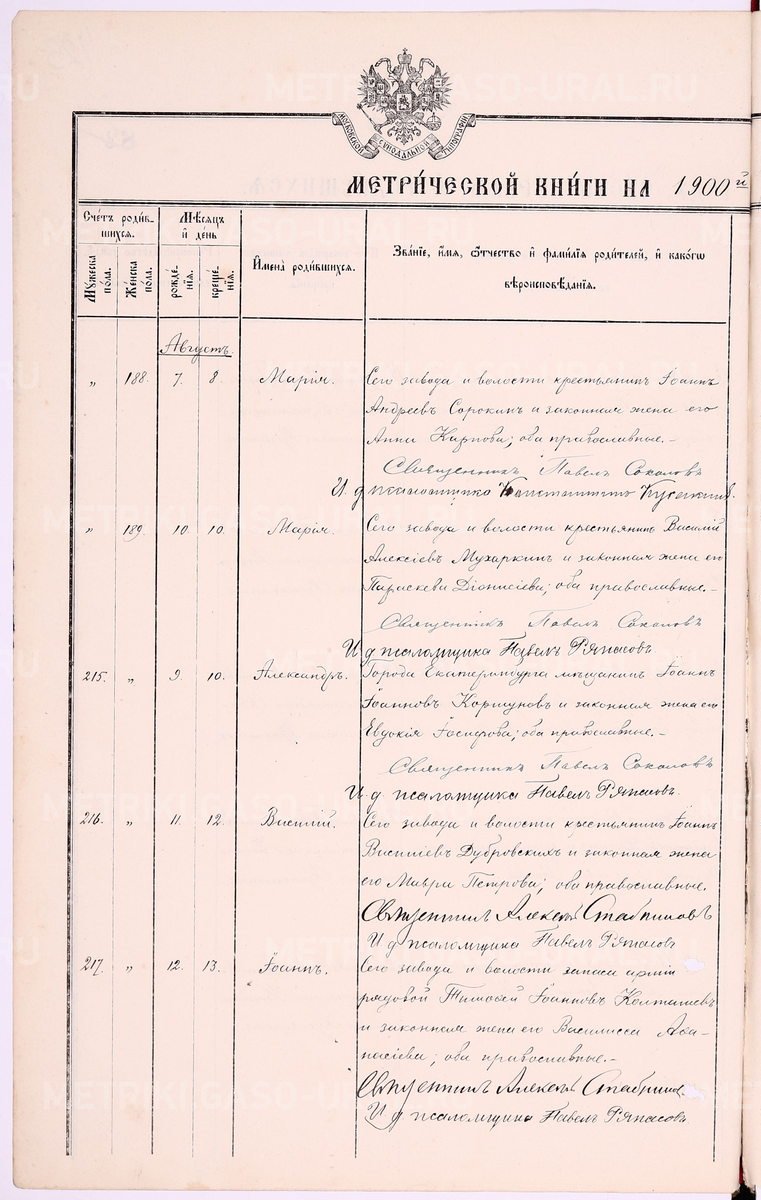 METRIKI.GASO-URAL.RU
МОСКОВСКОЙ СѴНОДАЛЬНОЙ ТИПОГРАФІИ
МЕТРИ́ЧЕСКОЙ КНИ́ГИ НА 1900й
Сче́тъ роди́в-
шихсѧ.
Мꙋжеска по́ла.
Же́нска по́ла.
Мѣ́сѧцъ и҆ де́нь
рожде́-нїѧ.
креще́-нїѧ.
И҆мена̀ роди́вшихсѧ.
Зва́нїе, и҆́мѧ, ѻ҆́тчество и҆ фами́лїѧ роди́телей, и҆ како́гѡ
вѣроисповѣ́данїѧ.
Августъ.
„ 188. 7. 8. Марія. Сего завода и волости крестьянинъ Іоаннъ
Андреевъ Сорокинъ и законная жена его
Анна Карпова; оба православные.-
Священникъ Павелъ Соколовъ
И. д псаломщика Константинъ
„ 189. 10. 10. Марія. Сего завода и волости крестьянинъ Василій
Алексіевъ Мухаркинъ и законная жена его
Параскева Діонисіева; оба православные.-
Священникъ Павелъ Соколовъ
И д псаломщика Павелъ Ряпасовъ
215. „ 9. 10. Александръ. Города Екатеринбурга мѣщанинъ Іоаннъ
Іоанновъ Коршуновъ и законная жена его
Евдокія Іосифова; оба православные.-
Священникъ Павелъ Соколовъ
И д псаломщика Павелъ Ряпасовъ
216. „ 11. 12. Василій. Сего завода и волости крестьянинъ Іоаннъ
Василіевъ Дубровскихъ и законная жена
его Мавра Петрова; оба православные.
Священникъ Алексѣй
И д псаломщика Павелъ Ряпасовъ
217. „ 12. 13. Іоаннъ. Сего завода и волости запаса арміи
рядовой Тимофей Іоанновъ Колташевъ
и законная жена его Василисса Аѳа-
насіева; оба православные.-
Священникъ Алексѣй
И д псаломщика Павелъ Ряпасовъ